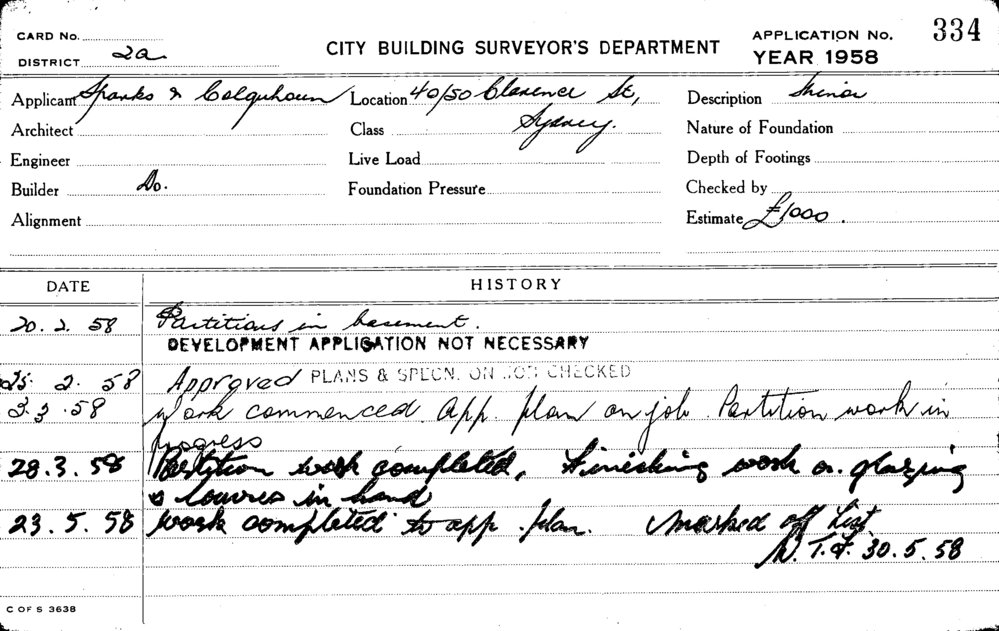 CARD No.
DISTRICT 2a
CITY BUILDING SURVEYOR'S DEPARTMENT
APPLICATION No. 334
YEAR 1958
Applicant Sparks & Colquhoun Location 40/50 Clarence St, Description Minor
Architect Class Sydney. Nature of Foundation
Engineer Live Load Depth of Footings
Builder Do. Foundation Pressure Checked by
Alignment Estimate £1000.
DATE HISTORY
20. 2. 58 Partitions in basement.
DEVELOPMENT APPLICATION NOT NECESSARY
25. 2. 58 Approved PLANS & SPECN. ON JOB CHECKED
3.3.58 Work commenced. App. plan on job. Partition work in
progress
28.3.58 Partition work completed, finishing work on glazing
& louvres in hand
23.5.58 work completed to app. plan. Marked off List
30.5.58
C OF S 3638